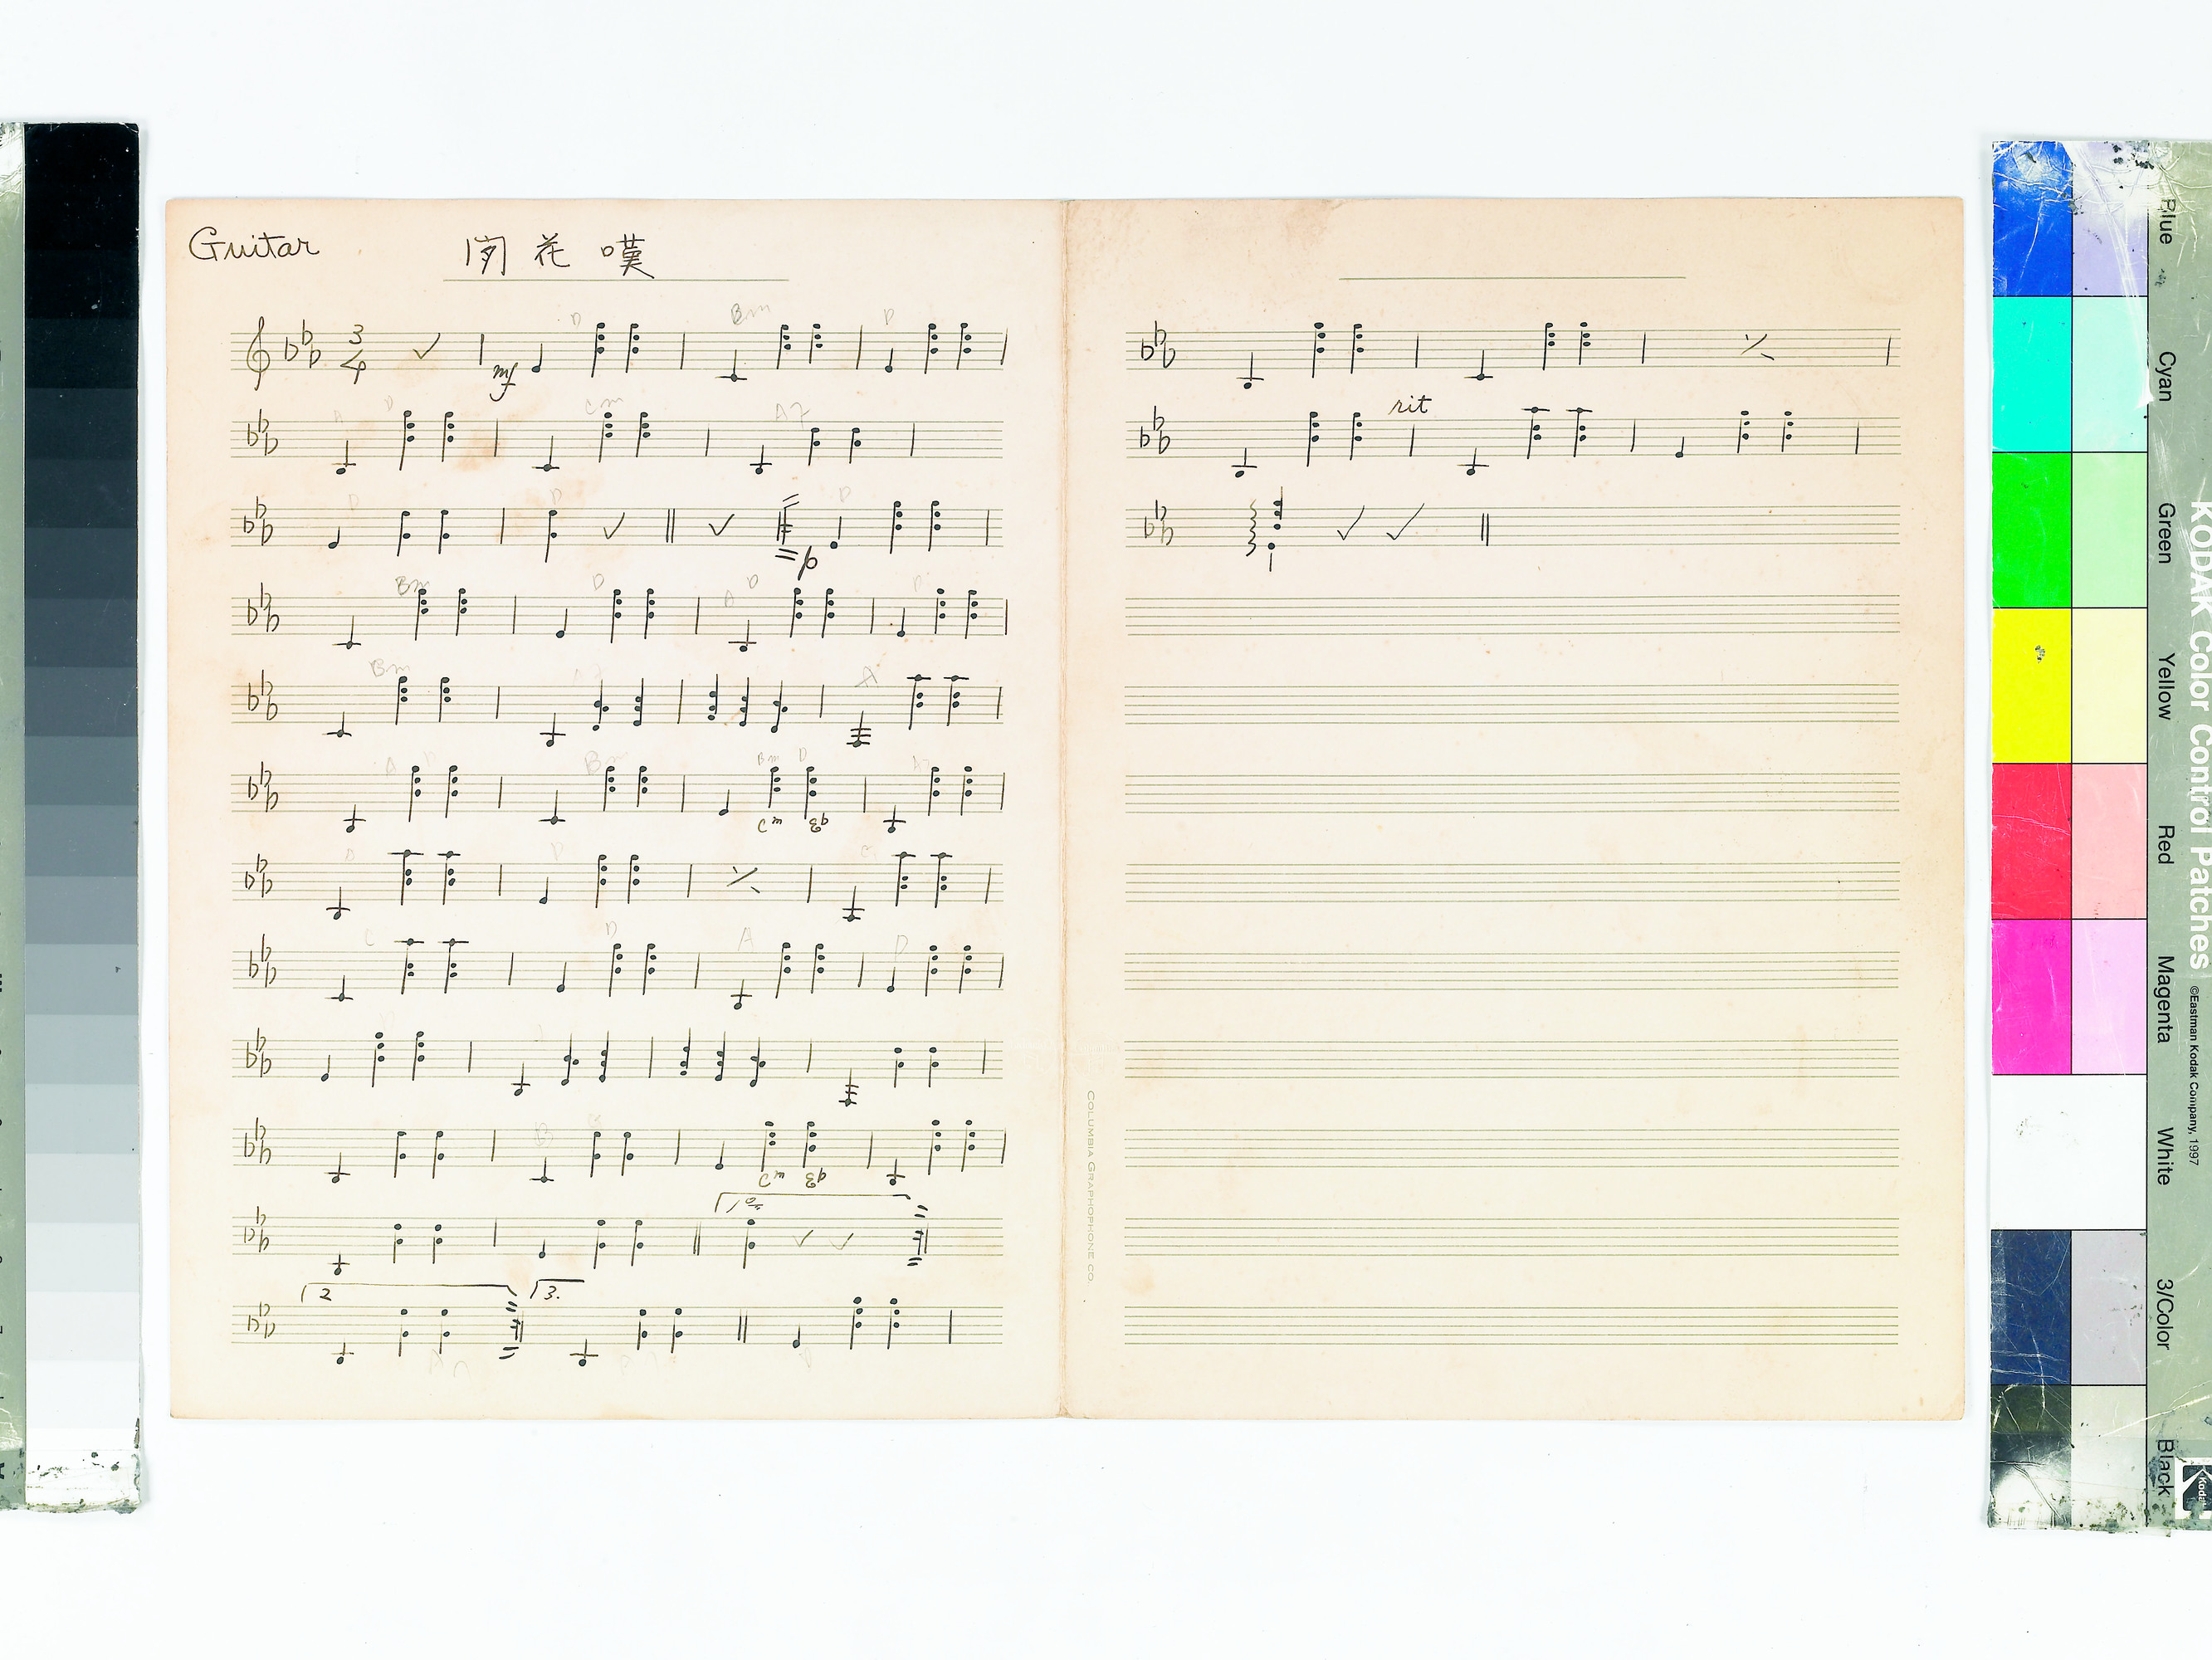 Guitar
花嘆
D Bm D
3
4
mf
A D Cm A7
D D D
p
Bm D A D D
Bm A
A D Bm Bm D A7
Cm Eb
D D G
C D A D
B G
Cm Eb
1o
2 3.
rit
COLUMBIA GRAPHOPHONE CO.
KODAK Color Control Patches ©Eastman Kodak Company, 1997
Blue
Cyan
Green
Yellow
Red
Magenta
White
3/Color
Black
Kodak